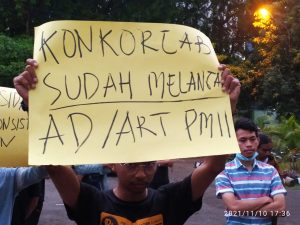 KONKORCAB
SUDAH MELANCA
AD/ART PMII
ONSIS
N
2021/11/10 17:36